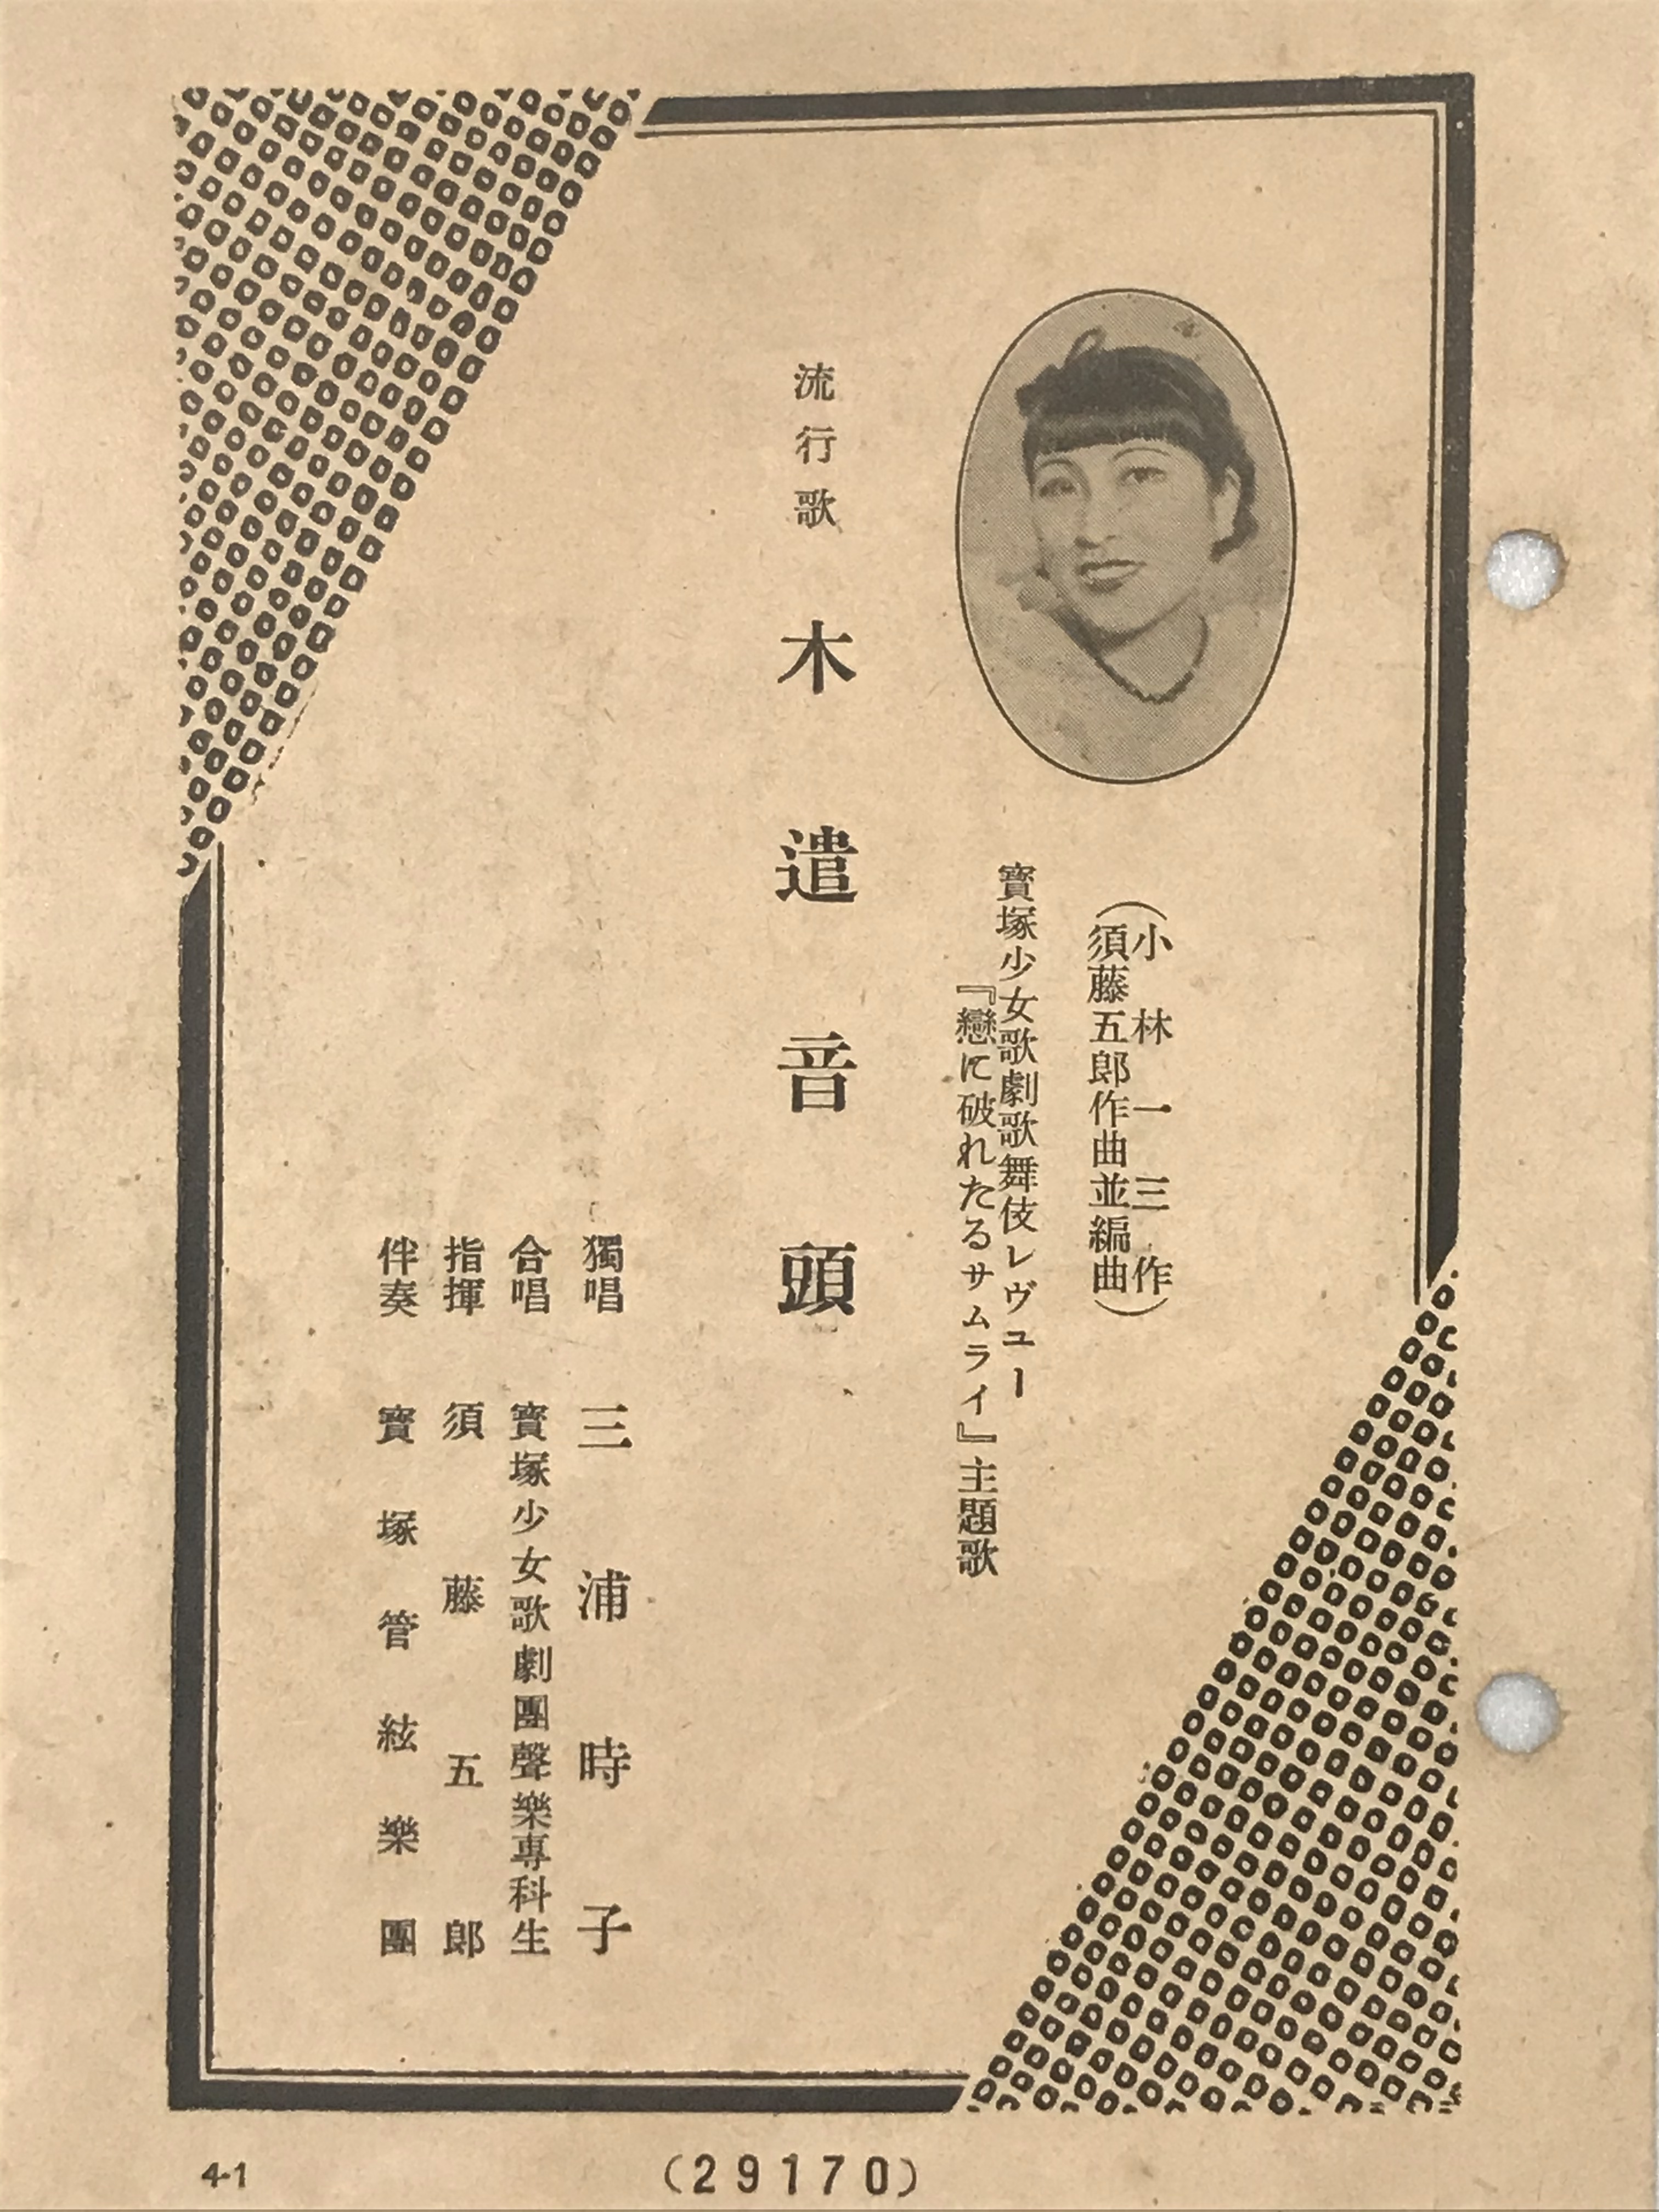 (小林一三作
須藤五郎作曲並編曲)
寶塚少女歌劇歌舞伎レヴユー
『戀に破れたるサムライ』主題歌
流行歌 木遣音頭
獨唱 三浦時子
合唱 寶塚少女歌劇團聲樂專科生
指揮 須藤五郎
伴奏 寶塚管絃樂團
4-1
(29170)